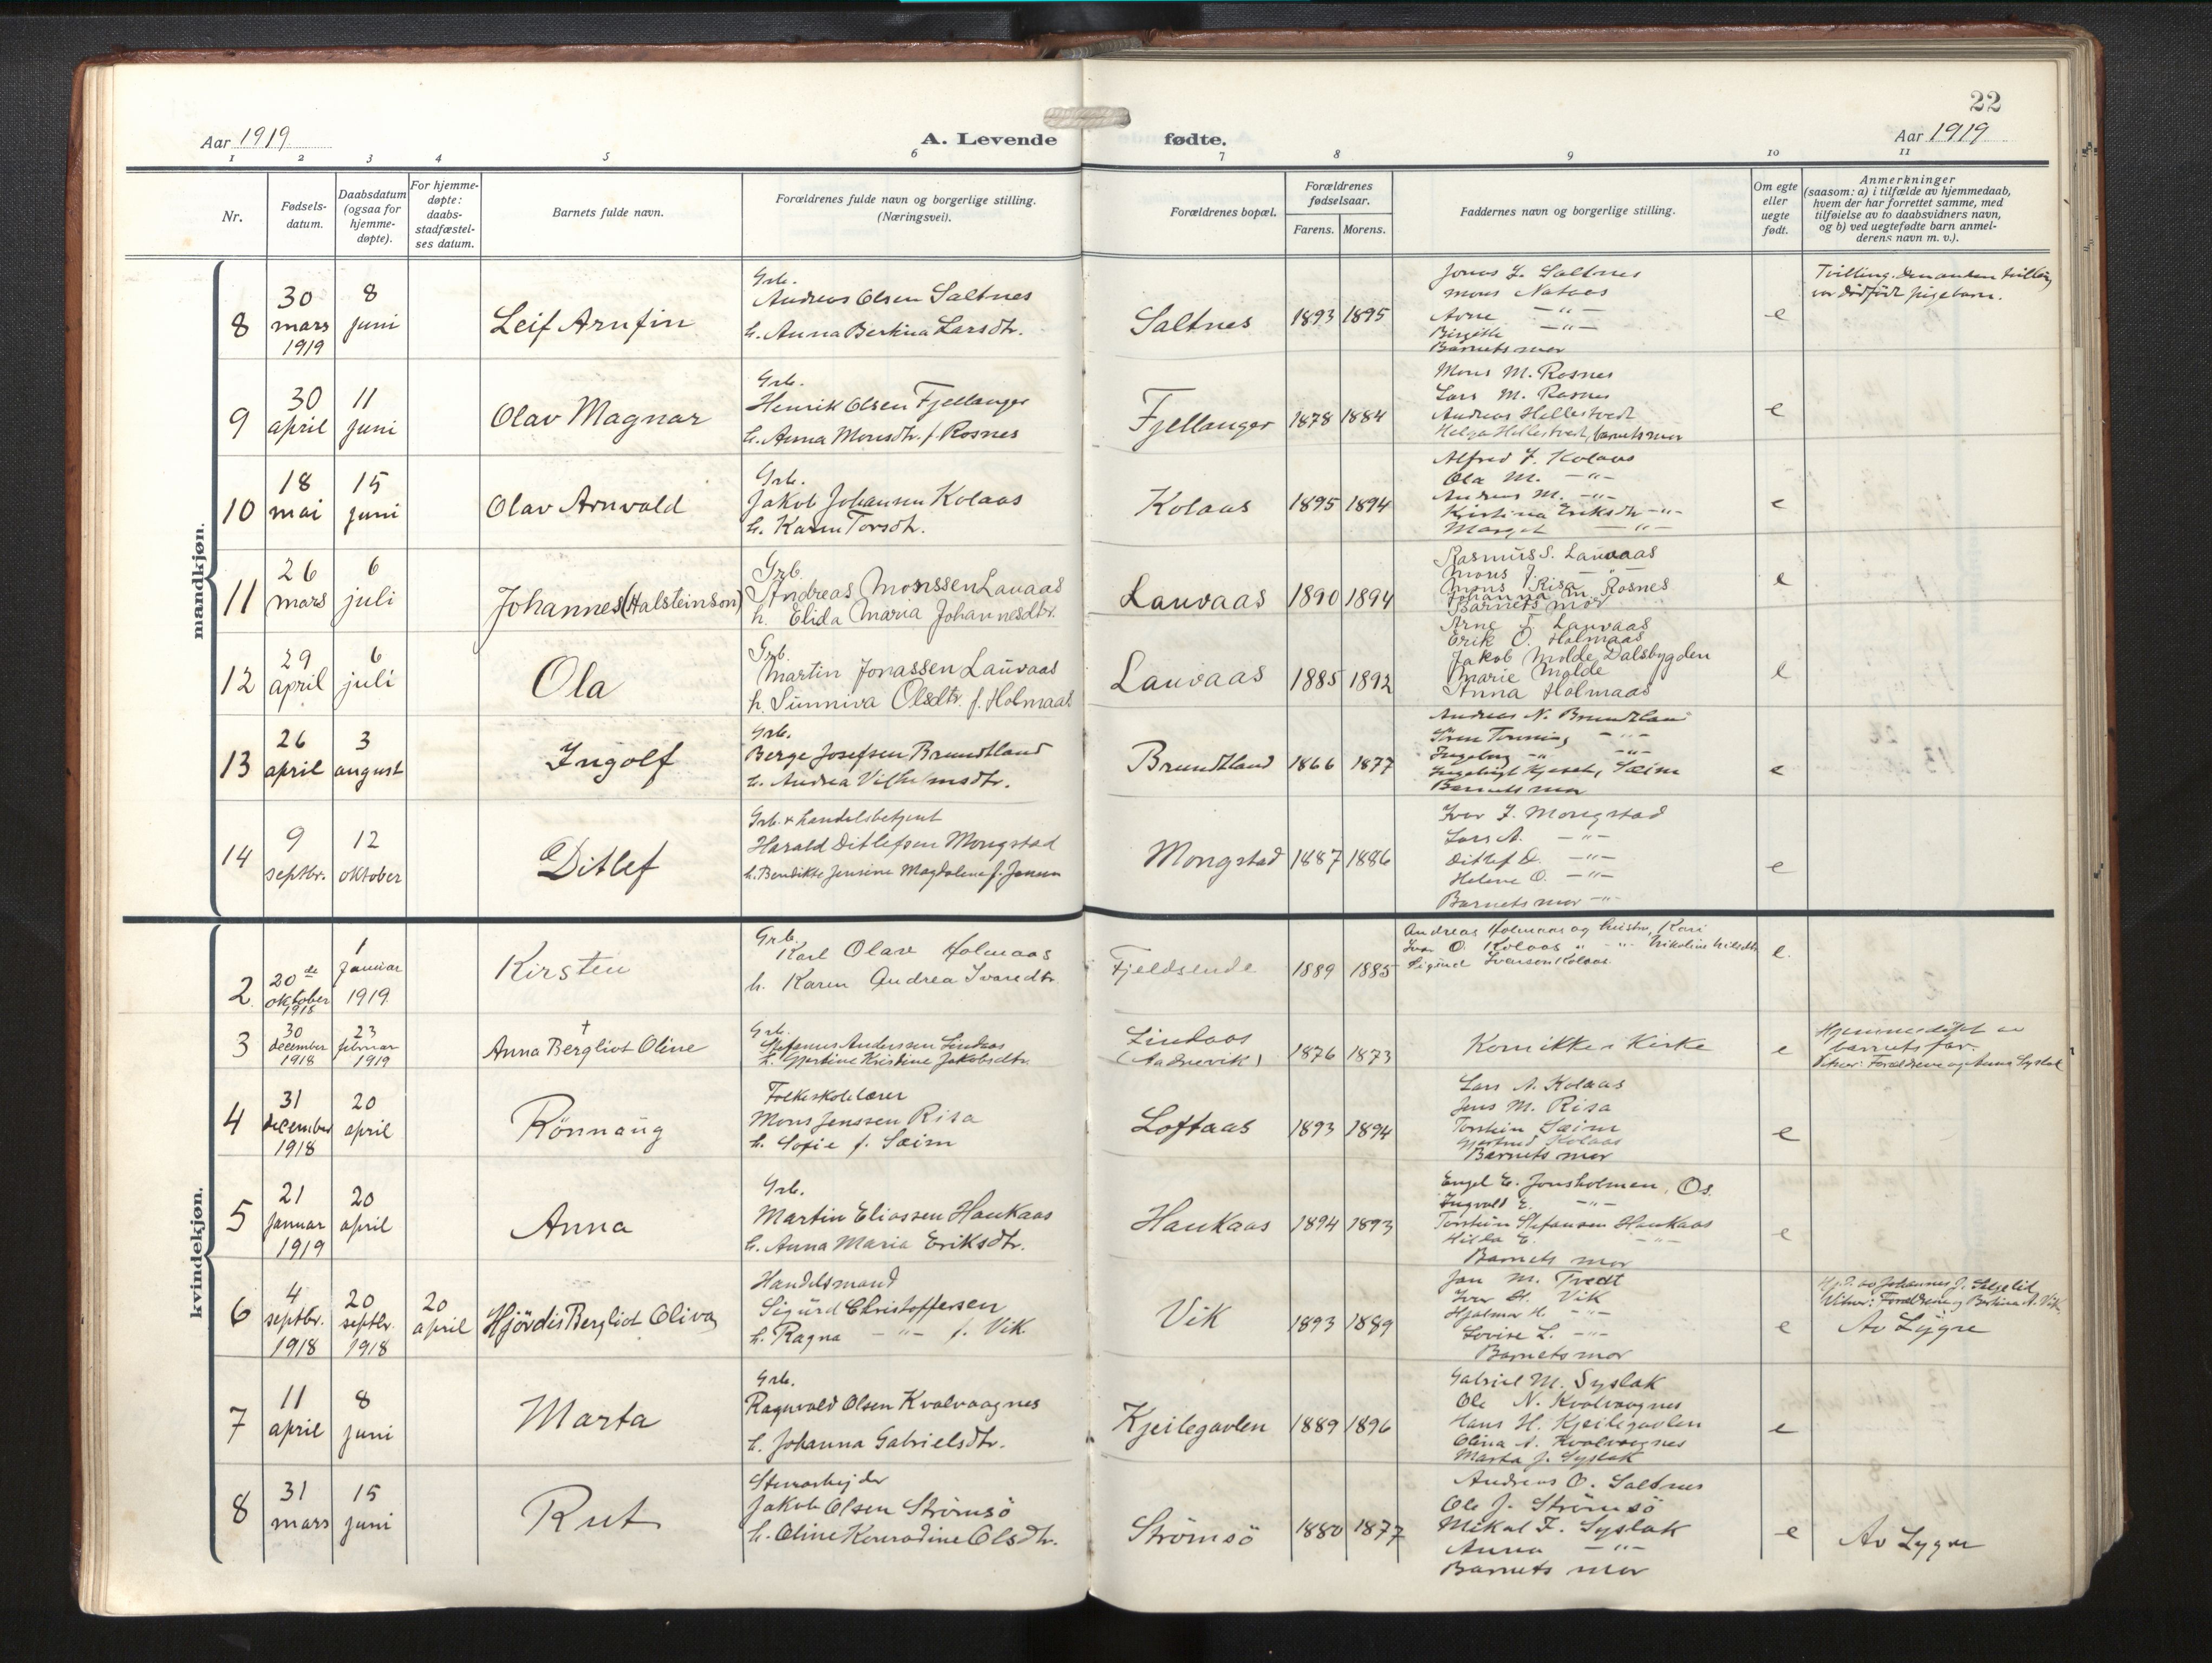 22
Aar 1919
A. Levende
fødte.
Aar 1919
1 2 3 4 5 6 7 8 9 10 11
Nr.
Fødsels-
datum.
Daabsdatum
(ogsaa for
hjemme-
døpte).
For hjemme-
døpte:
daabs-
stadfæstel-
ses datum.
Barnets fulde navn.
Forældrenes fulde navn og borgerlige stilling.
(Næringsvei).
Forældrenes bopæl.
Forældrenes
fødselsaar.
Farens. Morens.
Faddernes navn og borgerlige stilling.
Om egte
eller
uegte
født.
Anmerkninger
(saasom: a) i tilfælde av hjemmedaab,
hvem der har forrettet samme, med
tilføielse av to daabsvidners navn,
og b) ved uegtefødte barn anmel-
derens navn m. v.).
mandkjøn.
8
30
mars
1919
8
juni
Leif Arnfin
Grb.
Andreas Olsen Saltnes
h. Anna Bertina Larsdtr.
Saltnes
1893 1895
Jonas L. Saltnes
Mons Nataas
Arne —"—
Birgitte —"—
Barnets mor
e
Tvilling. Den anden tvilling
var dødfødt pigebarn.
9
30
april
11
juni
Olav Magnar
Grb.
Henrik Olsen Fjellanger
h. Anna Monsdtr. f. Rosnes
Fjellanger
1878 1884
Mons M. Rosnes
Lars M. Rosnes
Andreas Hellestvedt
Helga Hellestvedt, barnets mor
e
10
18
mai
15
juni
Olav Arnvald
Grb.
Jakob Johansen Kolaas
h. Karen Torsdtr.
Kolaas
1895 1894
Alfred J. Kolaas
Ola M. —"—
Andreas M. —"—
Kristina Eriksdtr —"—
Marget —"—
e
11
26
mars
6
juli
Johannes (Halsteinson)
Grb.
Andreas Monssen Lauvaas
h. Elida Maria Johannesdtr.
Lauvaas
1890 1894
Rasmus S. Lauvaas
Mons J. —"—
Mons J. Risa
Johanna M. Rosnes
Barnets mor
e
12
29
april
6
juli
Ola
Grb.
Martin Jonassen Lauvaas
h. Sunniva Olsdtr. f. Holmaas
Lauvaas
1885 1892
Arne J. Lauvaas
Erik O. Holmaas
Jakob Molde Dalsbygden
Marie Molde
Anna Holmaas
e
13
26
april
3
august
Ingolf
Grb.
Berge Josefsen Brundtland
h. Andrea Vilhelmsdtr.
Brundtland
1866 1877
Andreas N. Brundtland
—"—
Ingeborg —"— —"—
Sæim
Barnets mor
e
14
9
septbr.
12
oktober
Ditlef
Grb. & handelsbetjent
Harald Ditlefsen Mongstad
h. Bendikte Jensine Magdalena f. Jensen
Mongstad
1887 1886
Iver J. Mongstad
Lars A. —"—
Ditlef D. —"—
Helene O. —"—
Barnets mor —"—
e
kvindekjøn.
2.
20de
oktober
1918
1
januar
1919
Kirsten
Grb.
Karl Olave Holmaas
h. Karen Andrea Ivarsdtr.
Fjeldsende
1889 1885
Andreas Holmaas og hustru, Kari
Ivar O. Kolaas " —"— Nikoline Nilsdtr
Sigurd Iversen Kolaas
e.
3
30
december
1918
23
februar
1919
†
Anna Bergliot Oline
Grb.
Stefanus Anderssen Lindaas
h. Gjertine Kristine Jakobsdtr.
Lindaas
(Aadnevik)
1876 1873
Kom ikke i Kirke
e
Hjemmedøpt av
barnets far.
Vitner: Forældrene og Anna Syslak
4
31
december
1918
20
april
Rönnaug
Folkeskolelærer
Mons Jenssen Risa
h. Sofie f. Sæim
Loftaas
1893 1894
Lars A. Kolaas
Jens M. Risa
Torstein Sæim
Gjertrud Kolaas
Barnets mor
e
5
21
januar
1919
20
april
Anna
Grb.
Martin Eliassen Haukaas
h. Anna Maria Eriksdtr.
Haukaas
1894 1893
Engel E. Jonsholmen, Os.
Ingvald E. —"—
Torstein Stefansen Haukaas
Hilda E. —"—
Barnets mor
e
6
4
septbr.
1918
20
septbr.
1918
20
april
Hjördis Bergliot Oliva
Handelsmand
Sigurd Christoffersen
h. Ragna —"— f. Vik.
Vik
1893 1889
Jan M. Tvedt
Iver H. Vik
Hjalmar H. —"—
Lovise L. —"—
Barnets mor
e
Hj.d. av Johannes J.
Vitner: Forældrene og Bertina A. Vik
Av Lygre
7
11
april
8
juni
Marta
Grb.
Ragnvald Olsen Kvalvaagnes
h. Johanna Gabrielsdtr.
Kjeilegavlen
1889 1896
Gabriel M. Syslak
Ole N. Kvalvaagnes
Hans H. Kjeilegavlen
Olina A. Kvalvaagnes
Marta J. Syslak
e
8
31
mars
15
juni
Rut
Stenarbejder
Jakob Olsen Strömsö
h. Oline Konradine Olsdtr.
Strömsö
1880 1877
Andreas O. Saltnes
Ole J. Strömsö
Mikal F. Syslak
Anna —"—
Barnets mor
e
Av Lygre